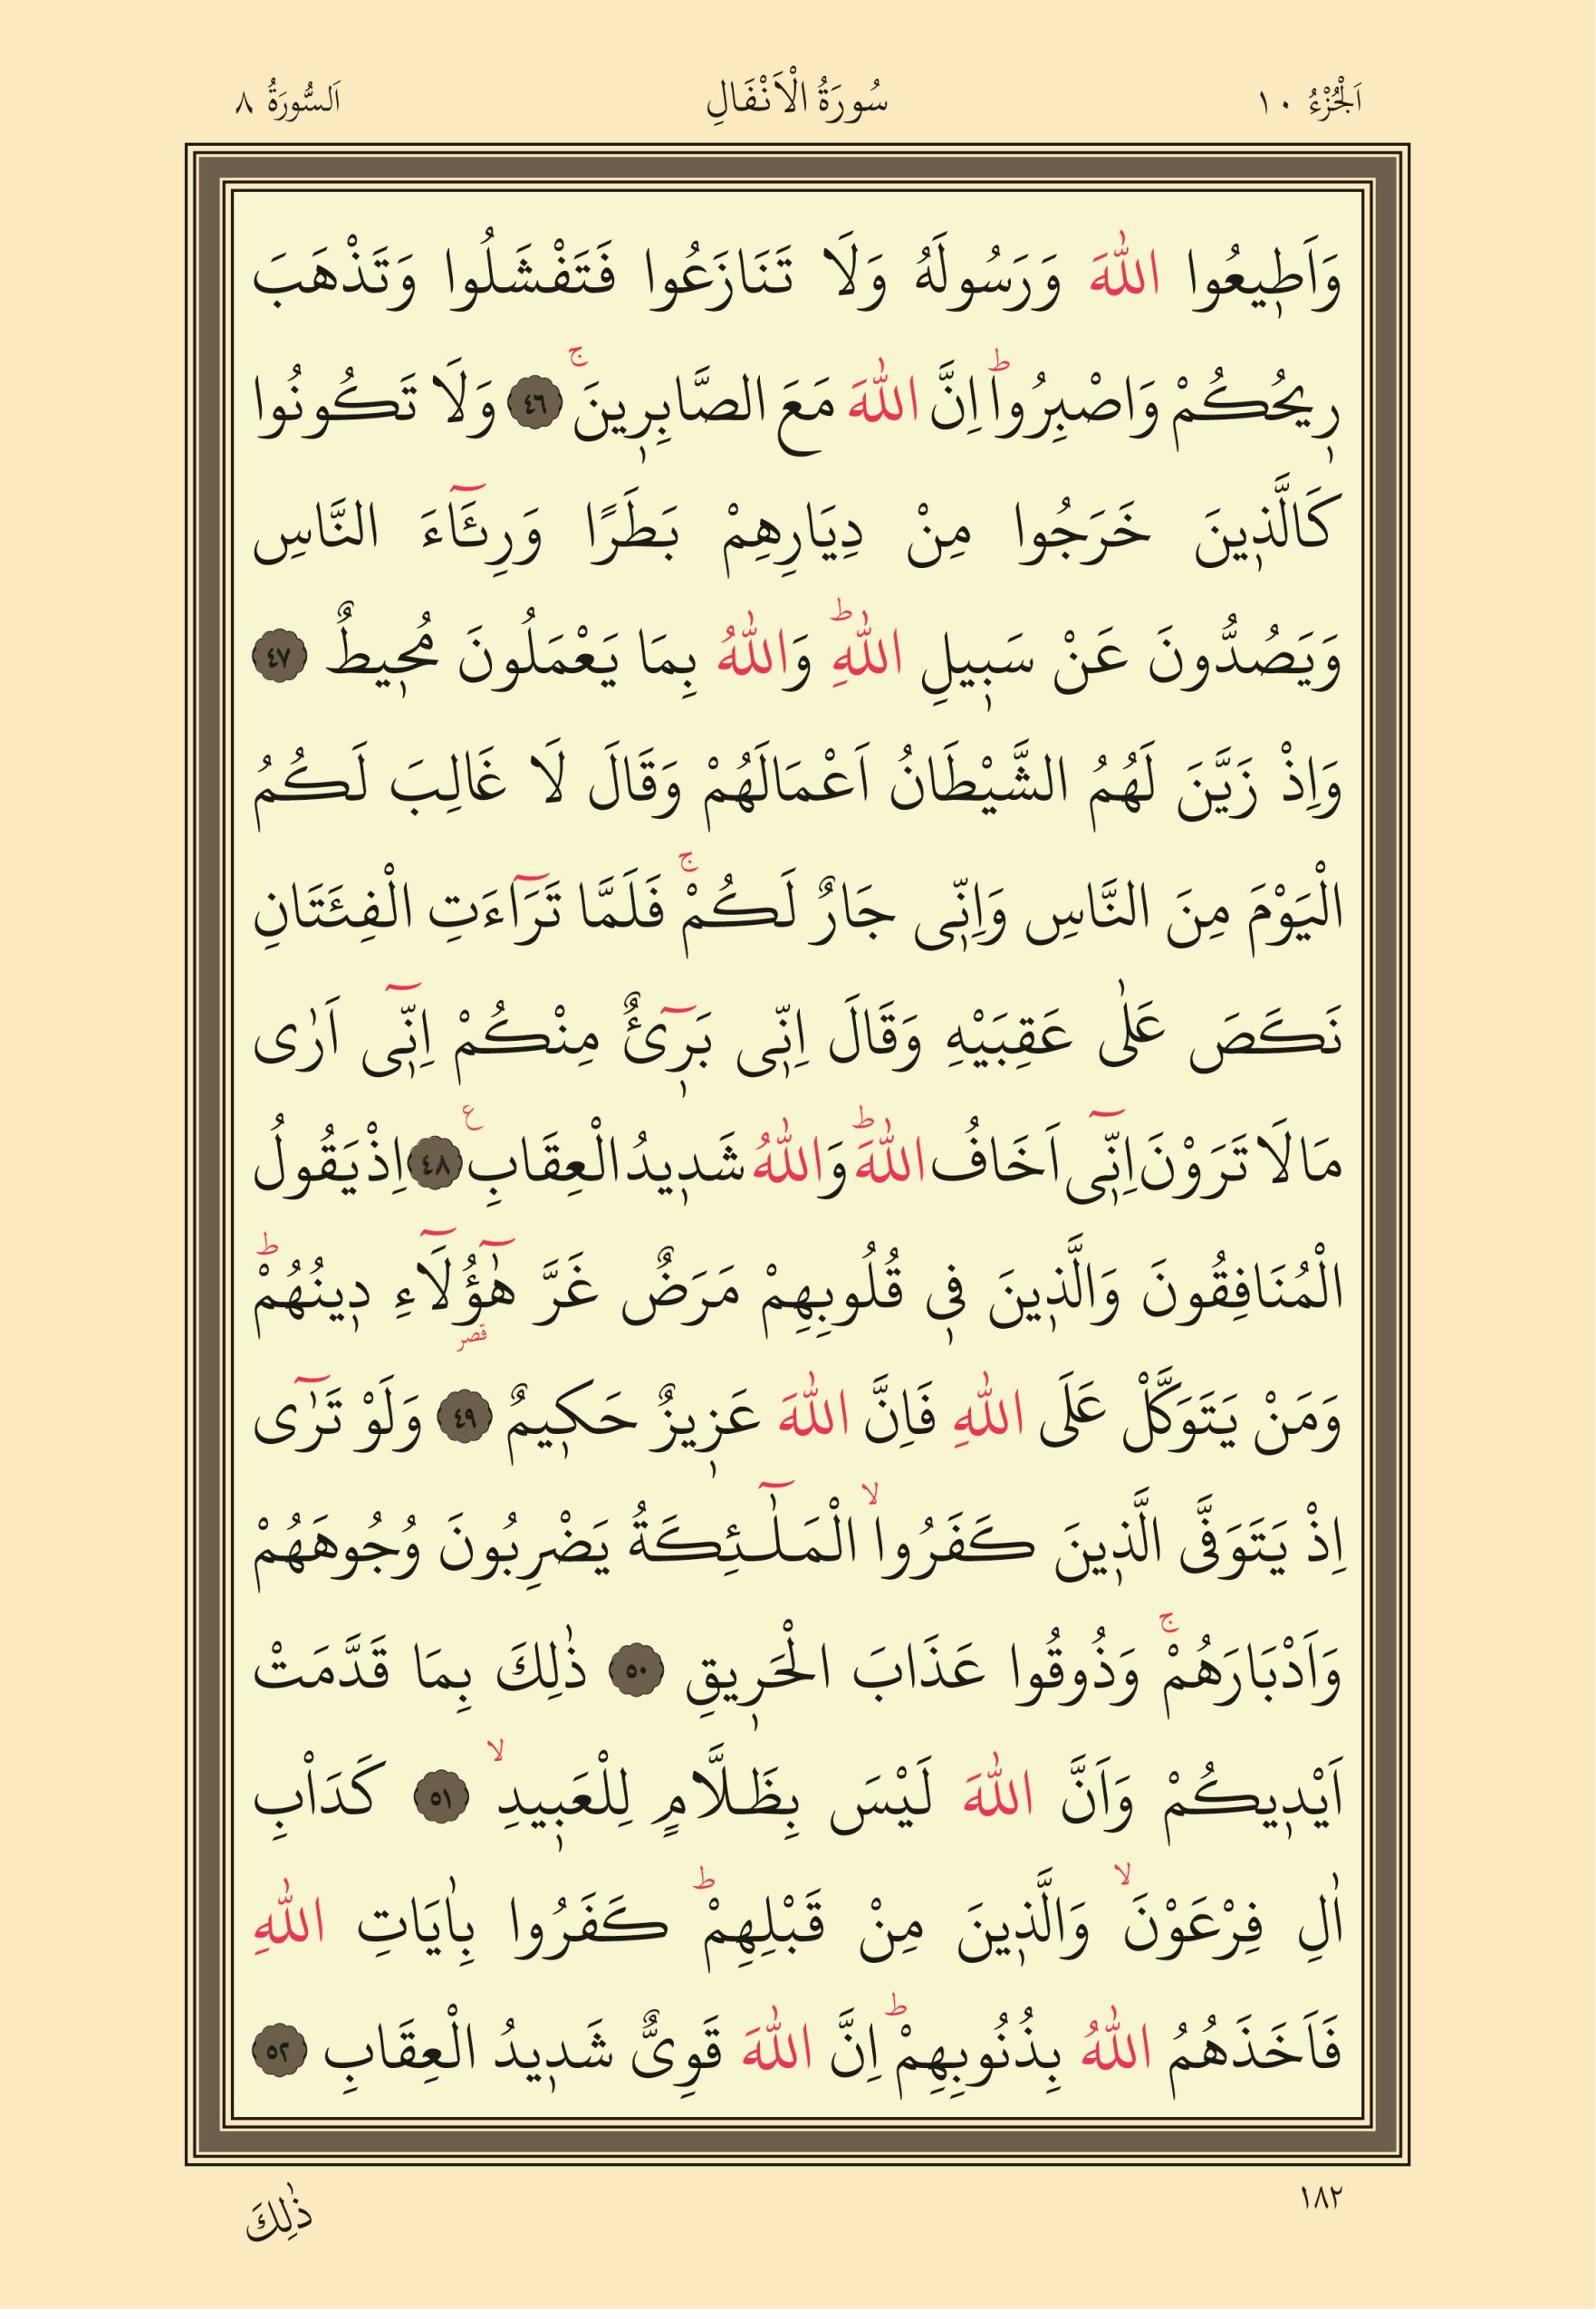 اَلْجُزْءُ ١٠ سُورَةُ الْاَنْفَالِ اَلسُّورَةُ ٨
وَاَط۪يعُوا اللّٰهَ وَرَسُولَهُ وَلَا تَنَازَعُوا فَتَفْشَلُوا وَتَذْهَبَ
ر۪يحُكُمْ وَاصْبِرُواۜ اِنَّ اللّٰهَ مَعَ الصَّابِر۪ينَۚ ﴿٤٦﴾ وَلَا تَكُونُوا
كَالَّذ۪ينَ خَرَجُوا مِنْ دِيَارِهِمْ بَطَرًا وَرِئَٓاءَ النَّاسِ
وَيَصُدُّونَ عَنْ سَب۪يلِ اللّٰهِۜ وَاللّٰهُ بِمَا يَعْمَلُونَ مُح۪يطٌ ﴿٤٧﴾
وَاِذْ زَيَّنَ لَهُمُ الشَّيْطَانُ اَعْمَالَهُمْ وَقَالَ لَا غَالِبَ لَكُمُ
الْيَوْمَ مِنَ النَّاسِ وَاِنّ۪ى جَارٌ لَكُمْۚ فَلَمَّا تَرَٓاءَتِ الْفِئَتَانِ
نَكَصَ عَلٰى عَقِبَيْهِ وَقَالَ اِنّ۪ى بَر۪ٓىءٌ مِنْكُمْ اِنّ۪ٓى اَرٰى
مَا لَا تَرَوْنَ اِنّ۪ٓى اَخَافُ اللّٰهَۜ وَاللّٰهُ شَد۪يدُ الْعِقَابِ۟ ﴿٤٨﴾ اِذْ يَقُولُ
الْمُنَافِقُونَ وَالَّذ۪ينَ ف۪ى قُلُوبِهِمْ مَرَضٌ غَرَّ هٰٓؤُ۬لَٓاءِ د۪ينُهُمْۜ
وَمَنْ يَتَوَكَّلْ عَلَى اللّٰهِ فَاِنَّ اللّٰهَ عَز۪يزٌ حَك۪يمٌ ﴿٤٩﴾ وَلَوْ تَرٰٓى
اِذْ يَتَوَفَّى الَّذ۪ينَ كَفَرُواۙ الْمَلٰٓئِكَةُ يَضْرِبُونَ وُجُوهَهُمْ
وَاَدْبَارَهُمْۚ وَذُوقُوا عَذَابَ الْحَر۪يقِ ﴿٥٠﴾ ذٰلِكَ بِمَا قَدَّمَتْ
اَيْد۪يكُمْ وَاَنَّ اللّٰهَ لَيْسَ بِظَلَّامٍ لِلْعَب۪يدِۙ ﴿٥١﴾ كَدَاْبِ
اٰلِ فِرْعَوْنَۙ وَالَّذ۪ينَ مِنْ قَبْلِهِمْۜ كَفَرُوا بِاٰيَاتِ اللّٰهِ
فَاَخَذَهُمُ اللّٰهُ بِذُنُوبِهِمْۜ اِنَّ اللّٰهَ قَوِىٌّ شَد۪يدُ الْعِقَابِ ﴿٥٢﴾
١٨٢ ذٰلِكَ